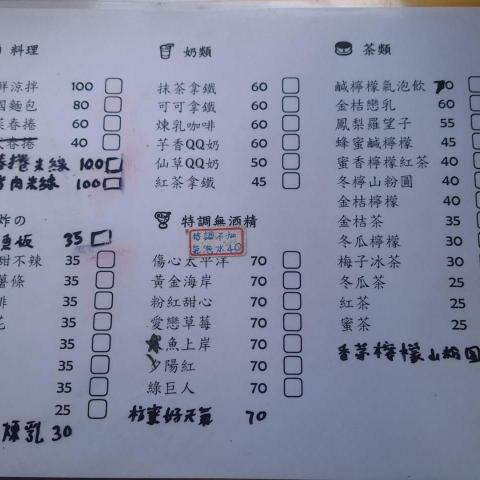 料理
鮮涼拌 100
國麵包 80
菜春捲 60
春捲 40
春捲米線 100
肉米線 100
炸の
魚板 35
甜不辣 35
薯條 35
35
花 35
35
35
25
煉乳 30
奶類
抹茶拿鐵 60
可可拿鐵 60
煉乳咖啡 60
芋香QQ奶 50
仙草QQ奶 50
紅茶拿鐵 45
特調無酒精
特調不加
氣泡水40
傷心太平洋 70
黃金海岸 70
粉紅甜心 70
愛戀草莓 70
魚上岸 70
夕陽紅 70
綠巨人 70
枋寮好天氣 70
茶類
鹹檸檬氣泡飲 70
金桔戀乳 60
鳳梨羅望子 55
蜂蜜鹹檸檬 45
蜜香檸檬紅茶 40
冬檸山粉圓 40
金桔檸檬 40
金桔茶 35
冬瓜檸檬 30
梅子冰茶 30
冬瓜茶 25
紅茶 25
蜜茶 25
香茅檸檬山粉圓